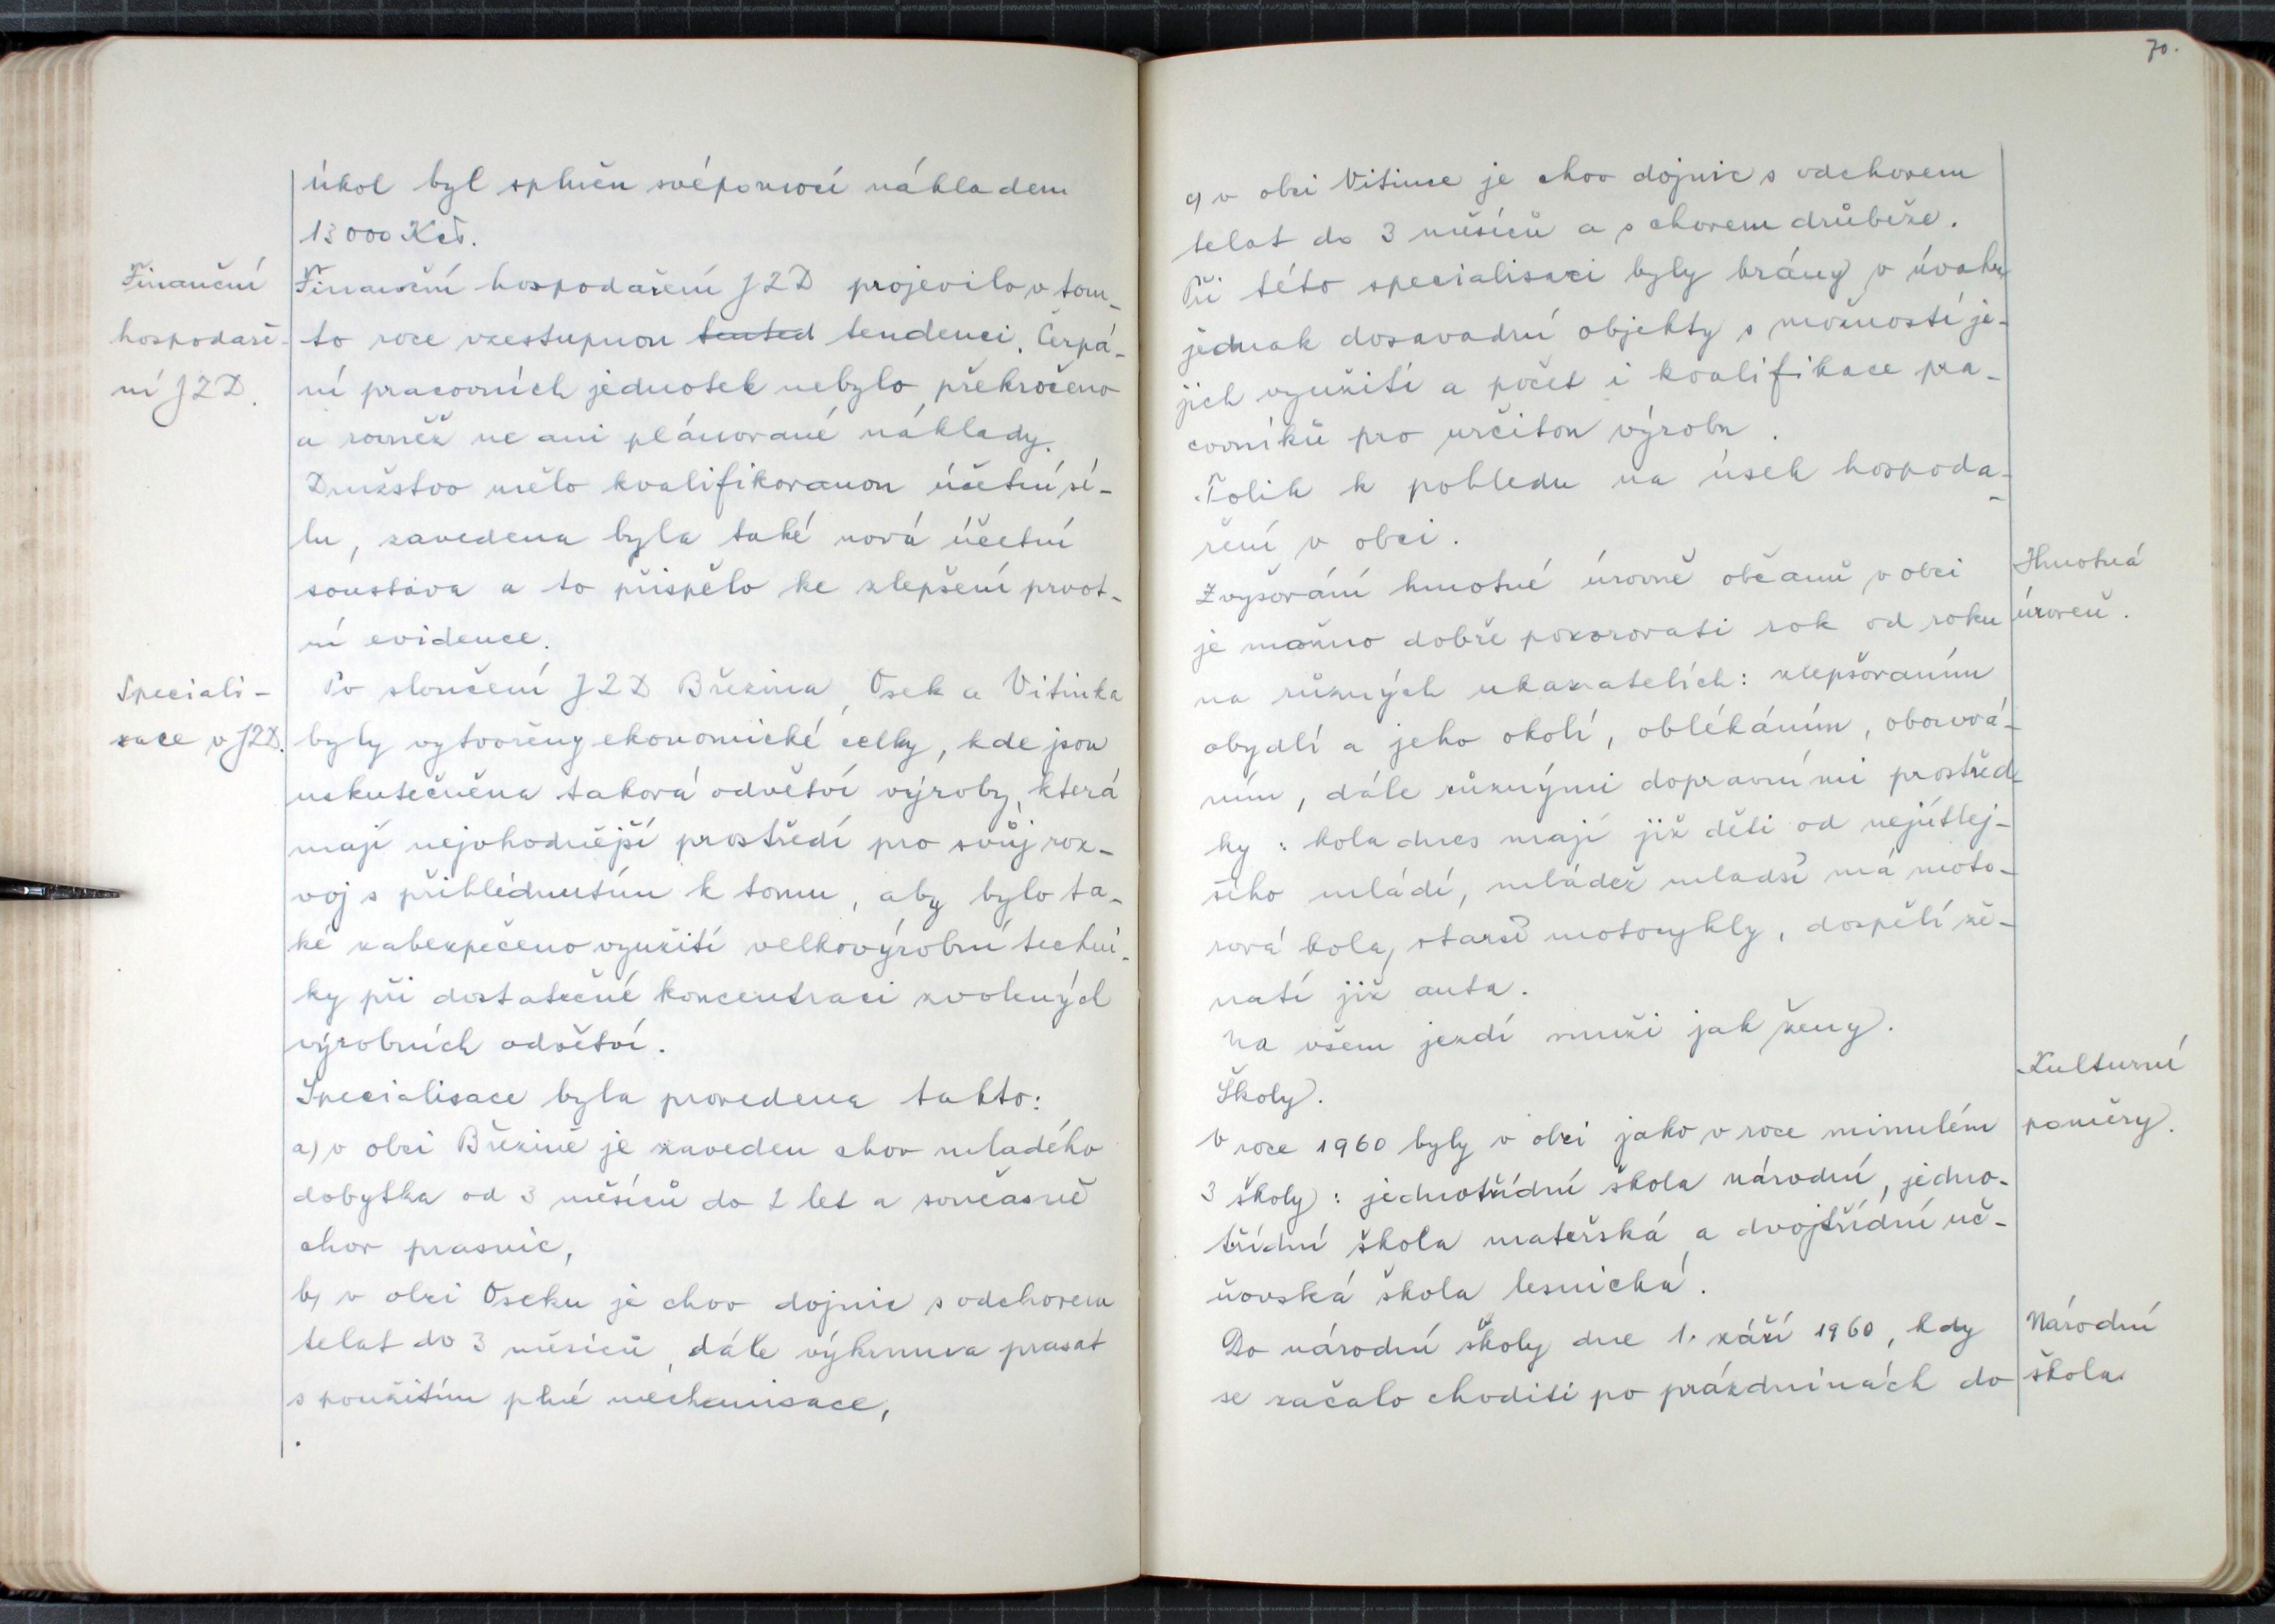 úkol byl splněn svépomocí nákladem
13 000 Kčs.
Finanční
hospodaře-
ní JZD.
Finanční hospodaření JZD projevilo v tom-
to roce vzestupnou tented tendenci. Čerpá-
ní pracovních jednotek nebylo překročeno
a rovněž ne ani plánované náklady.
Družstvo mělo kvalifikovanou účetní sí-
lu, zavedena byla také nová účetní
soustava a to přispělo ke zlepšení prvot-
ní evidence.
Speciali-
zace v JZD.
Po sloučení JZD Březina, Osek a Vitinka
byly vytvořeny ekonomické celky, kde jsou
uskutečněna taková odvětví výroby, která
mají nejvhodnější prostředí pro svůj roz-
voj s přihlédnutím k tomu, aby bylo ta-
ké zabezpečeno využití velkovýrobní techni-
ky při dostatečné koncentraci zvolených
výrobních odvětví.
Specialisace byla provedena takto:
a) v obci Březině je zaveden chov mladého
dobytka od 3 měsíců do 2 let a současně
chov prasnic,
b) v obci Oseku je chov dojnic s odchovem
telat do 3 měsíců, dále výkrmna prasat
s použitím plné mechanisace,
70.
c) v obci Vitince je chov dojnic s odchovem
telat do 3 měsíců a s chovem drůbeže.
Při této specialisaci byly brány v úvahu
jednak dosavadní objekty s možností je-
jich využití a počet i kvalifikace pra-
covníků pro určitou výrobu.
Tolik k pohledu na úsek hospoda-
ření v obci.
Hmotná
úroveň.
Zvyšování hmotné úrovně občanů v obci
je možno dobře pozorovati rok od roku
na různých ukazatelích: zlepšováním
obydlí a jeho okolí, oblékáním, obouvá-
ním, dále různými dopravními prostřed-
ky: kola dnes mají již děti od nejútlej-
šího mládí, mládež mladší má moto-
rová kola, starší motocykly, dospělí že-
natí již auta.
Na všem jezdí muži jak ženy.
Kulturní
poměry.
Školy.
V roce 1960 byly v obci jako v roce minulém
3 školy: jednotřídní škola národní, jedno-
třídní škola mateřská a dvojtřídní uč-
ňovská škola lesnická.
Národní
škola.
Do národní školy dne 1. září 1960, kdy
se začalo choditi po prázdninách do